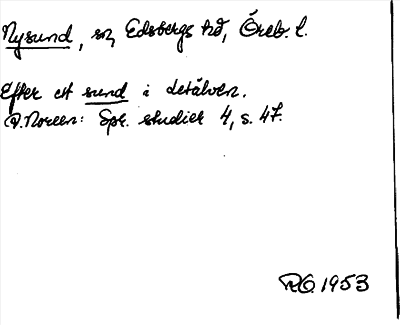 Nysund, sn, Edsbergs hd, Öreb. l.
Efter ett sund i Letälven.
A. Noreen: Spr. studier 4, s. 47.
R.O. 1953